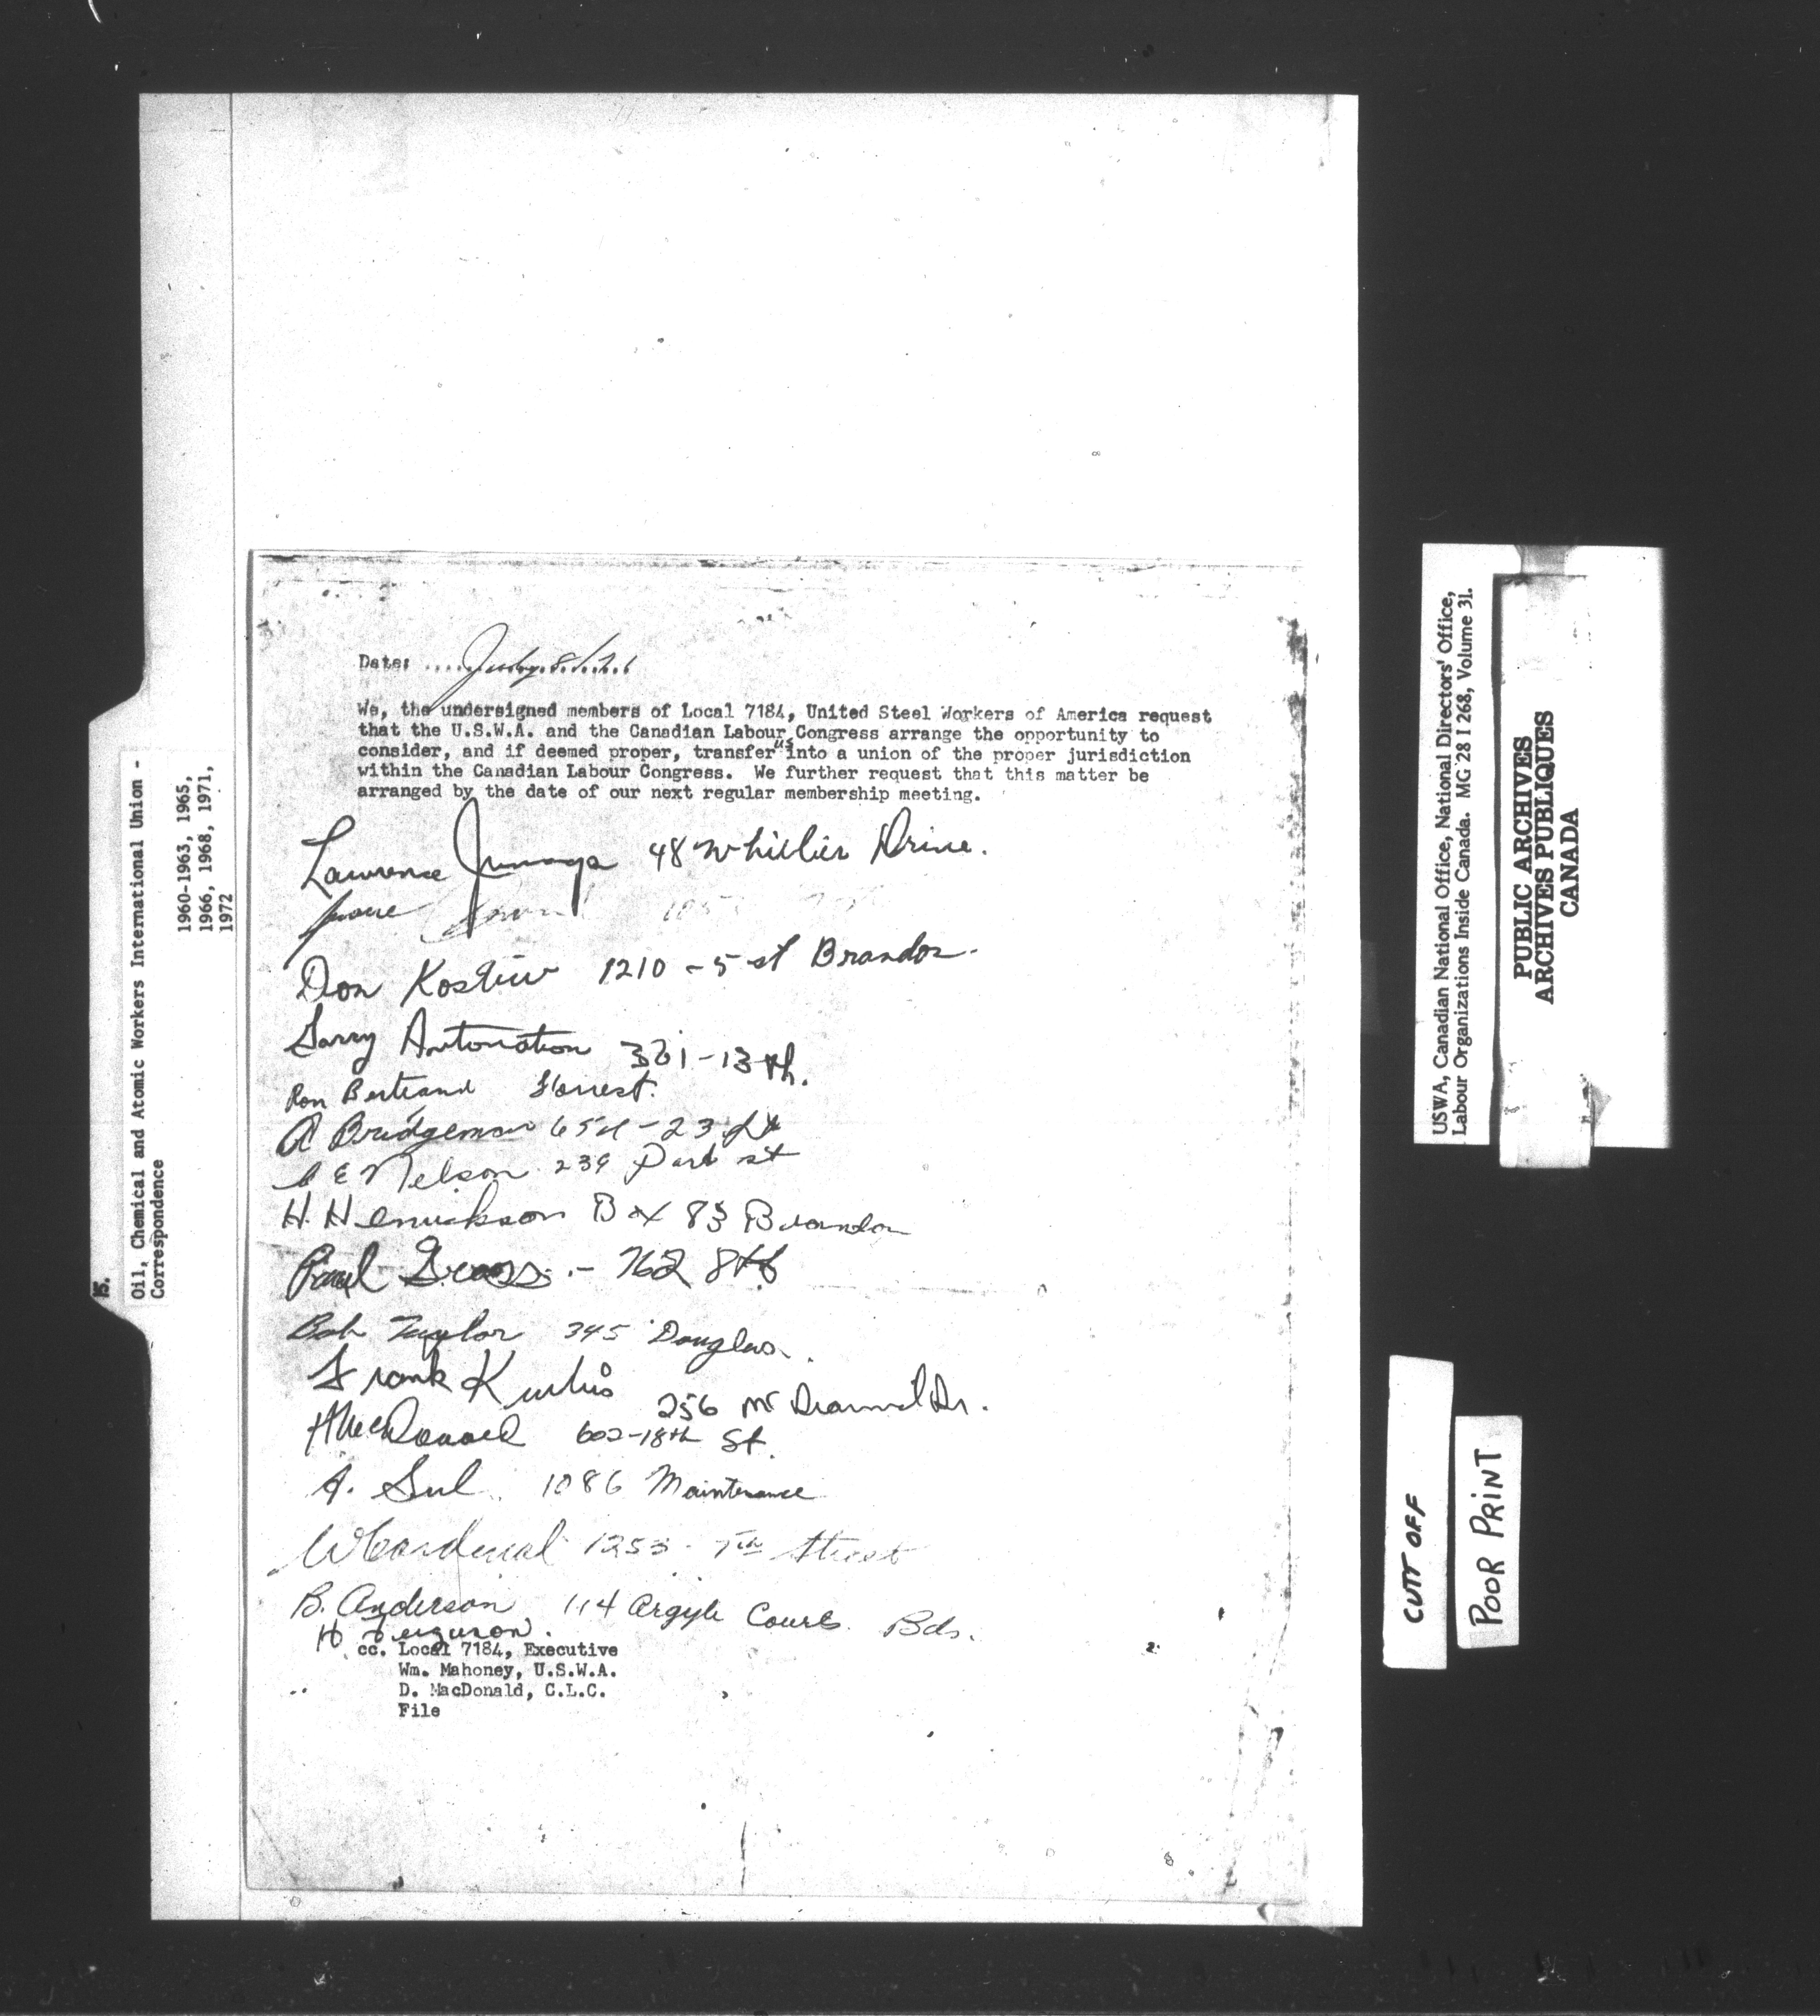 15.
Oil, Chemical and Atomic Workers International Union -
Correspondence
1960-1963, 1965,
1966, 1968, 1971,
1972
Date: .... July 8
We, the undersigned members of Local 7184, United Steel Workers of America request
that the U.S.W.A. and the Canadian Labour Congress arrange the opportunity to
consider, and if deemed proper, transfer us into a union of the proper jurisdiction
within the Canadian Labour Congress. We further request that this matter be
arranged by the date of our next regular membership meeting.
Lawrence 48 Whillier Drive.
Don 1210 - 5 st Brandon
Larry 361-13th.
Ron Bertrand Forrest.
A Bridgeman 654-23 St
E Nelson 239 Park st
H. Henrickson Box 83 Brandon
Paul Gross - 762 8th
Bob Taylor 345 Douglas.
Frank Kurtis 256 Mc Diarmid Dr.
H MacDonald 602-18th St.
A. 1086 Maintenance
W Cardinal 1253 - 7th Street
B. Anderson 114 Argyle Courts Bdn.
H Ferguson.
cc. Local 7184, Executive
Wm. Mahoney, U.S.W.A.
D. MacDonald, C.L.C.
File
USWA, Canadian National Office, National Directors' Office,
Labour Organizations Inside Canada. MG 28 I 268, Volume 31.
PUBLIC ARCHIVES
ARCHIVES PUBLIQUES
CANADA
CUTT OFF
POOR PRINT